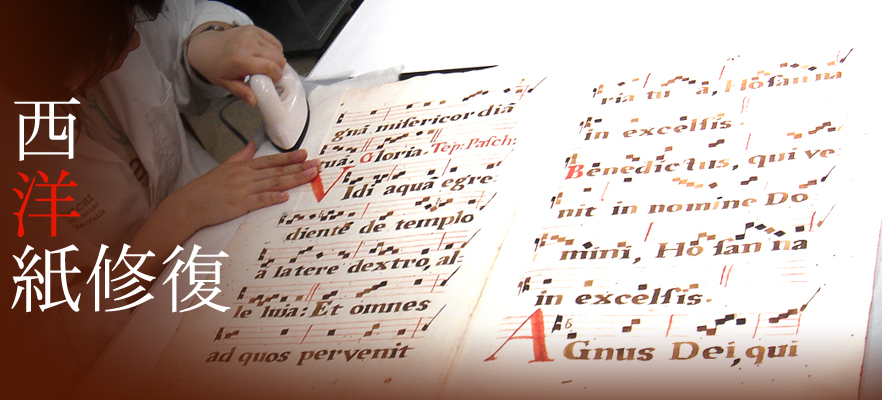 西
洋
紙修復
gnã mifericordiã
tuã. Gloria. Tep: Pafch:
Vidi aquã egre
diente de templo
â latere dextro, al-
le luia: Et omnes
ad quos pervenit
ria tu â, Hofanna
in excelfis.
Benedictus, qui ve
nit in nomine Do
mini, Hofanna
in excelfis.
6
Agnus Dei, qui